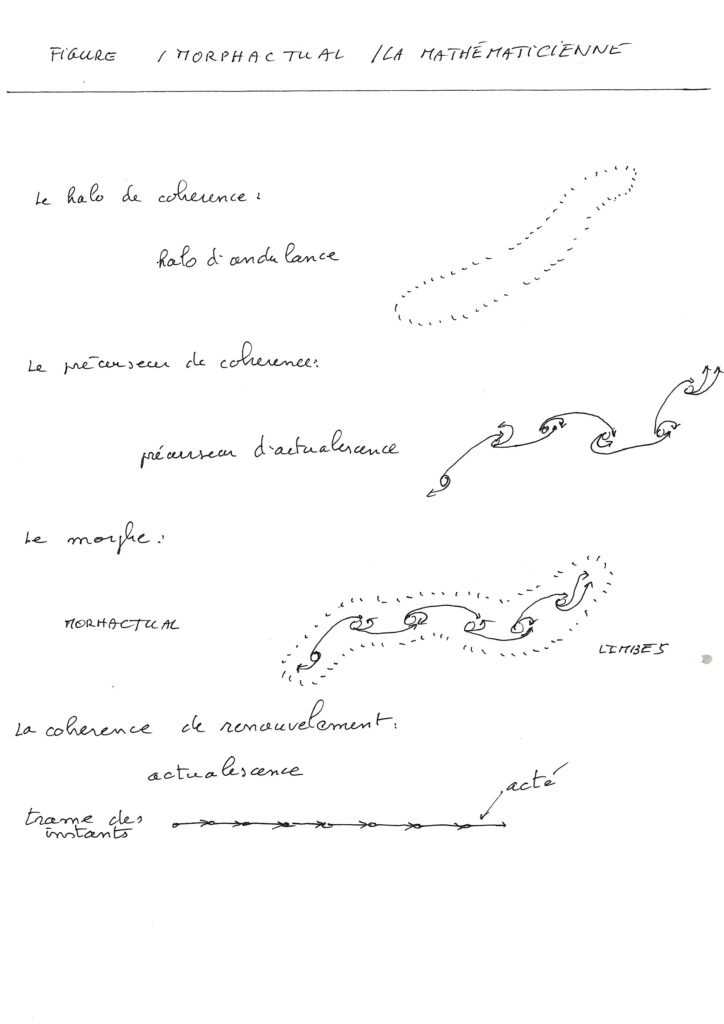 FIGURE / MORPHACTUAL / LA MATHÉMATICIENNE
Le halo de coherence :
halo d'ondulance
Le précurseur de coherence :
précurseur d'actualescence
Le morphe :
MORHACTUAL
LIMBES
La coherence de renouvelement :
actualescence
acté
trame des
instants